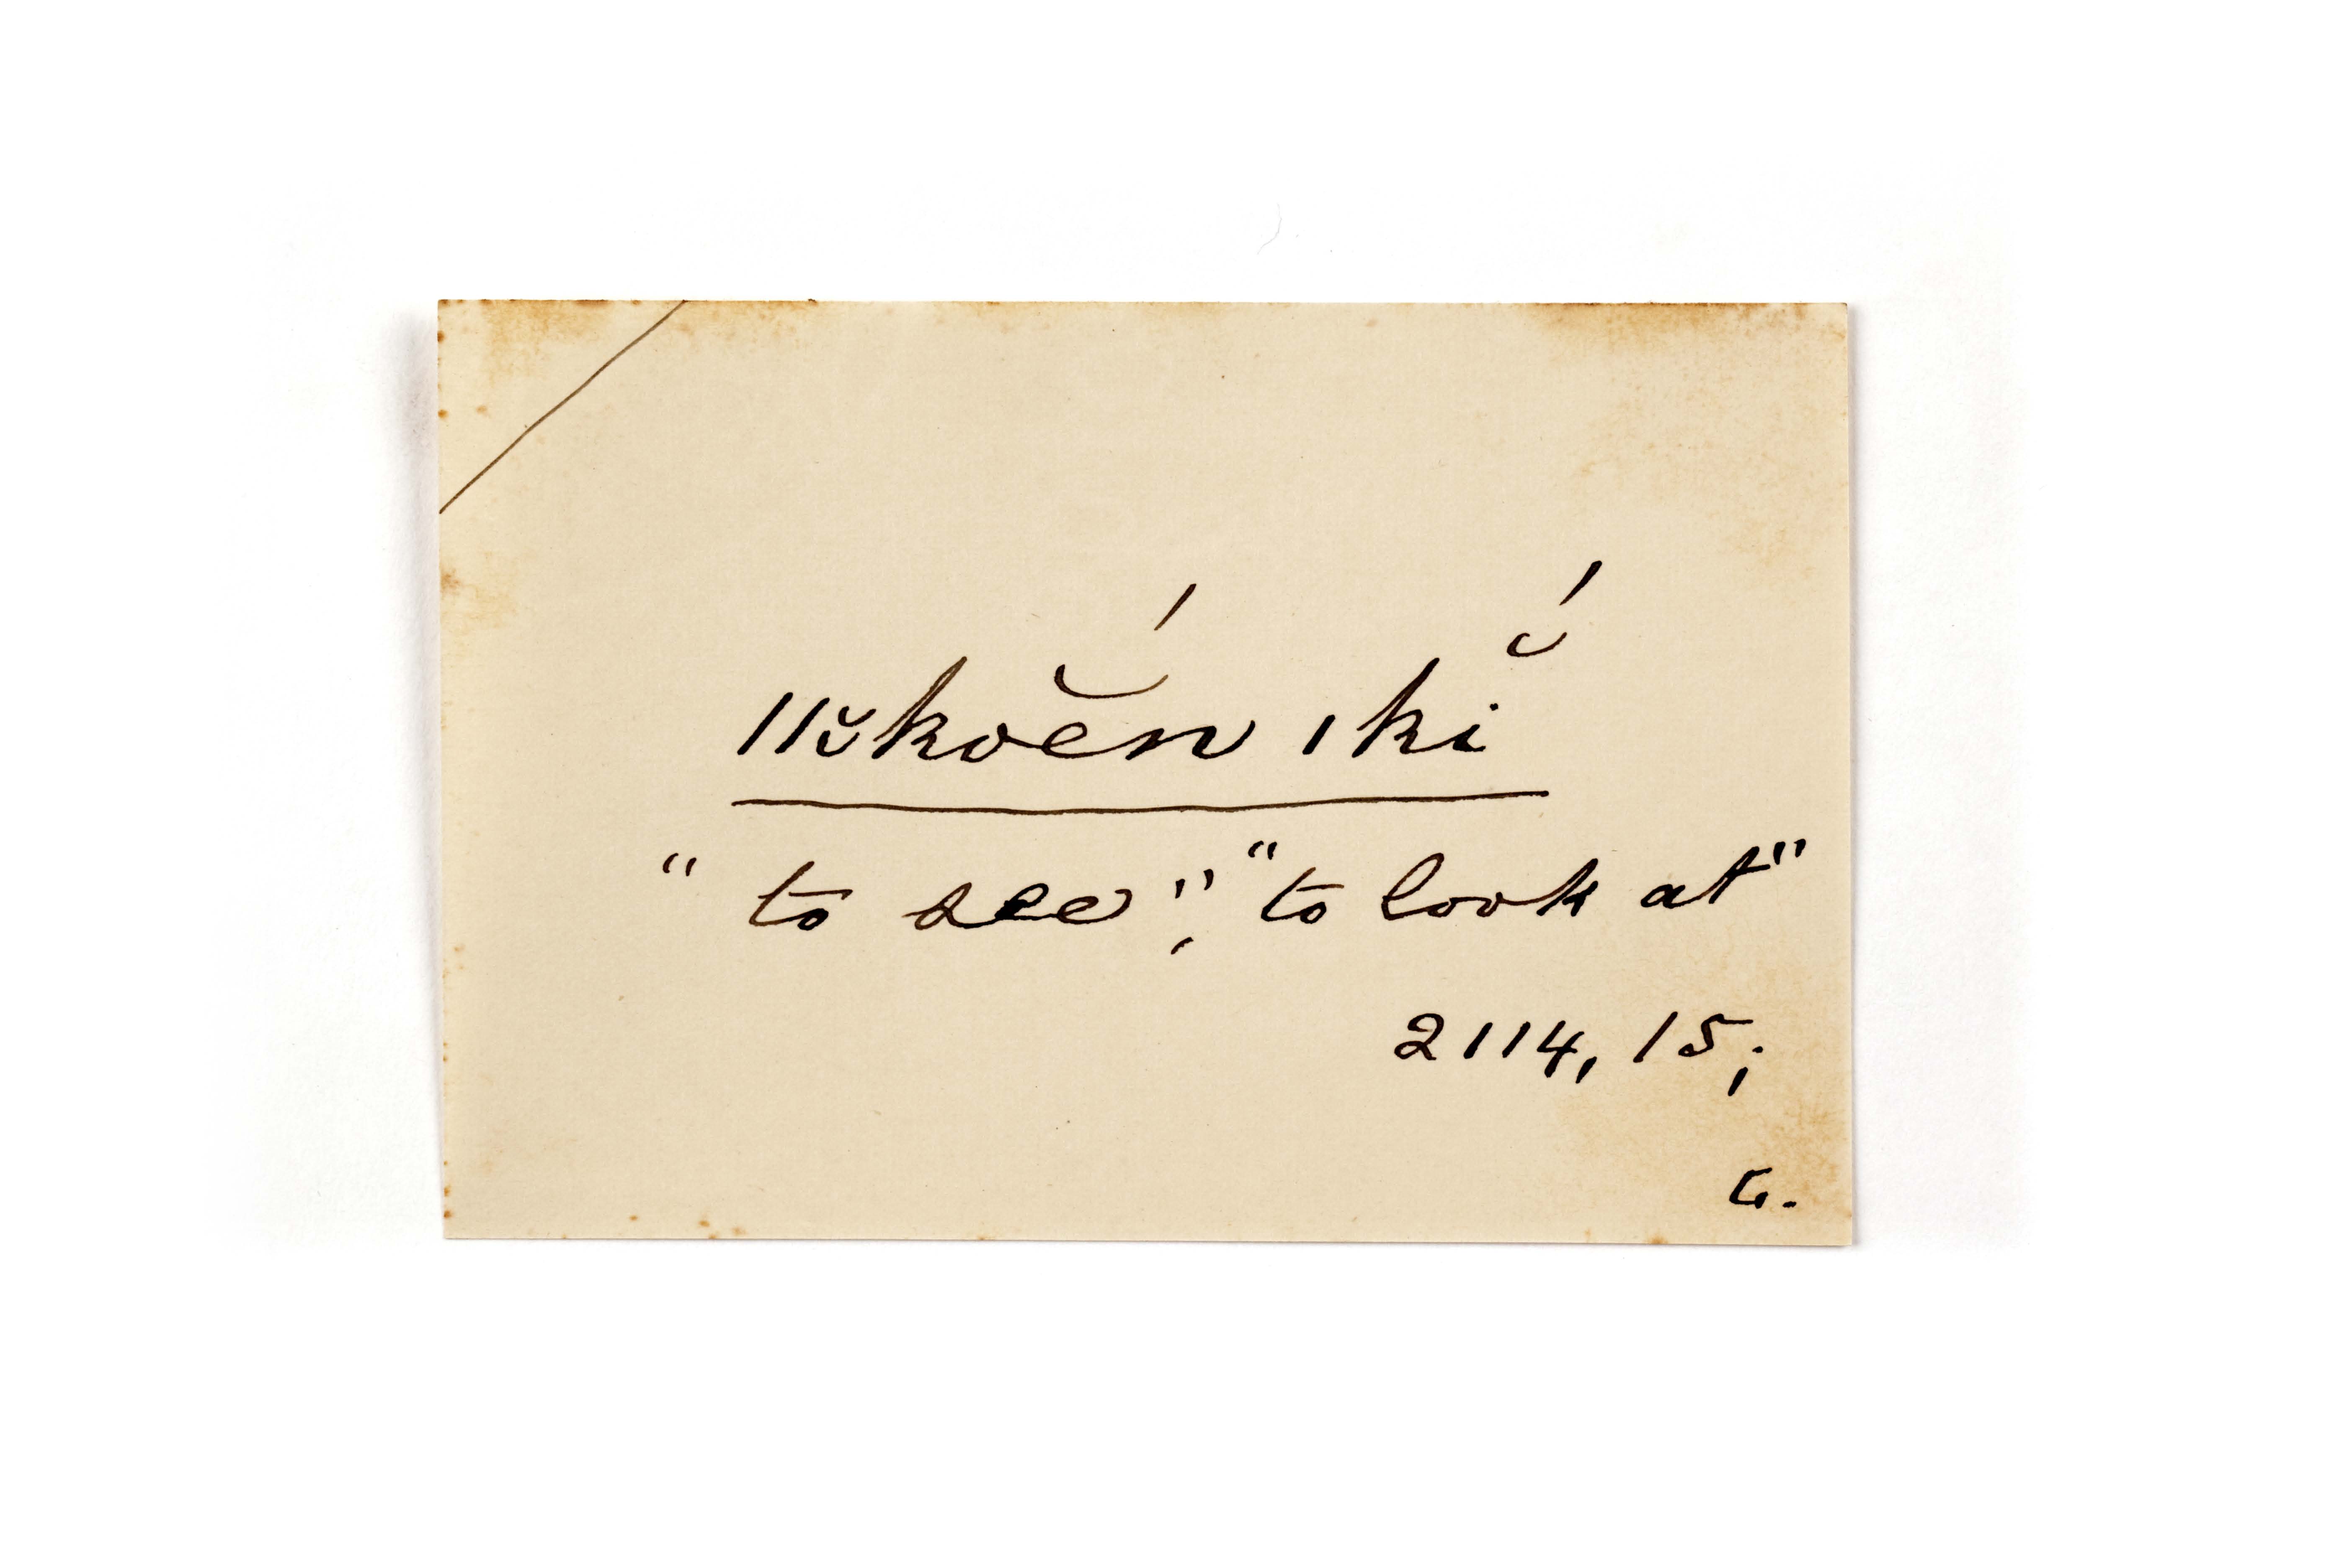 11ŭkoĕ́n ıkĭ́
" to see", "to look at"
2114, 15;
G.